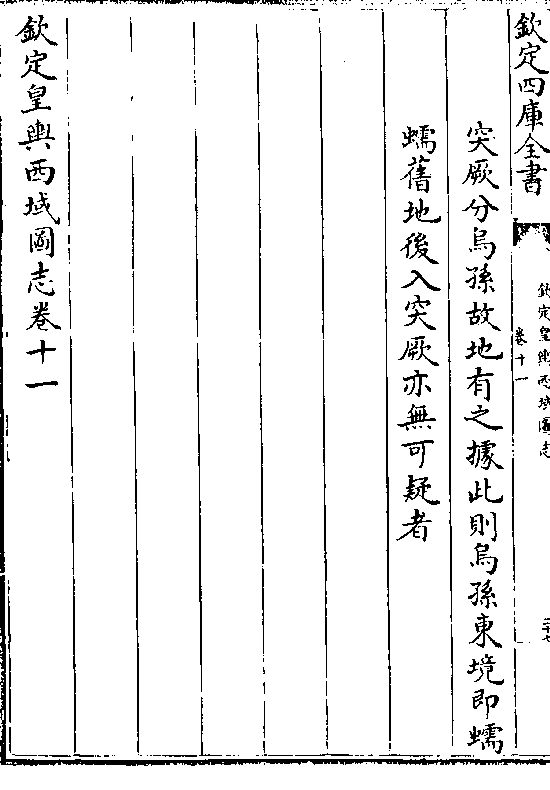 欽定四庫全書
欽定皇輿西域圖志
卷十一
二十七
突厥分烏孫故地有之據此則烏孫東境即蠕
蠕舊地後入突厥亦無可疑者
欽定皇輿西域圖志卷十一